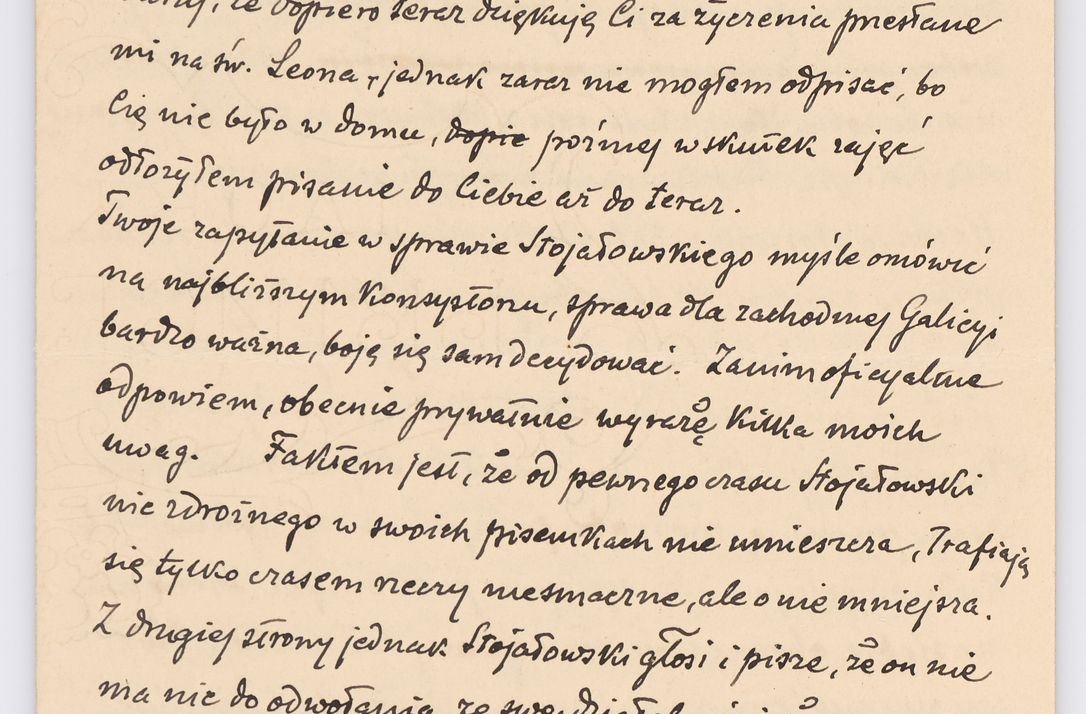 że dopiero teraz dziękuję Ci za życzenia przesłane
mi na św. Leona, jednak zaraz nie mogłem odpisać, bo
Cię nie było w domu, dopie poźniej wskutek zajęć
odłożyłem pisanie do Ciebie aż do teraz.
Twoje zapytanie w sprawie Stojałowskiego myślę omówić
na najbliższym Konsystorzu, sprawa dla zachodniej Galicyi
bardzo ważna, boję się sam decydować. Zanim oficyalnie
odpowiem, obecnie prywatnie wyrażę Kilka moich
uwag. Faktem jest, że od pewnego czasu Stojałowski
nic zdrożnego w swoich pisemkach nie umieszcza, Trafiają
się tylko czasem rzeczy niesmaczne, ale o nie mniejsza.
Z drugiej strony jednak Stojałowski głosi i pisze, że on nie
ma nic do odwołania, ze swej